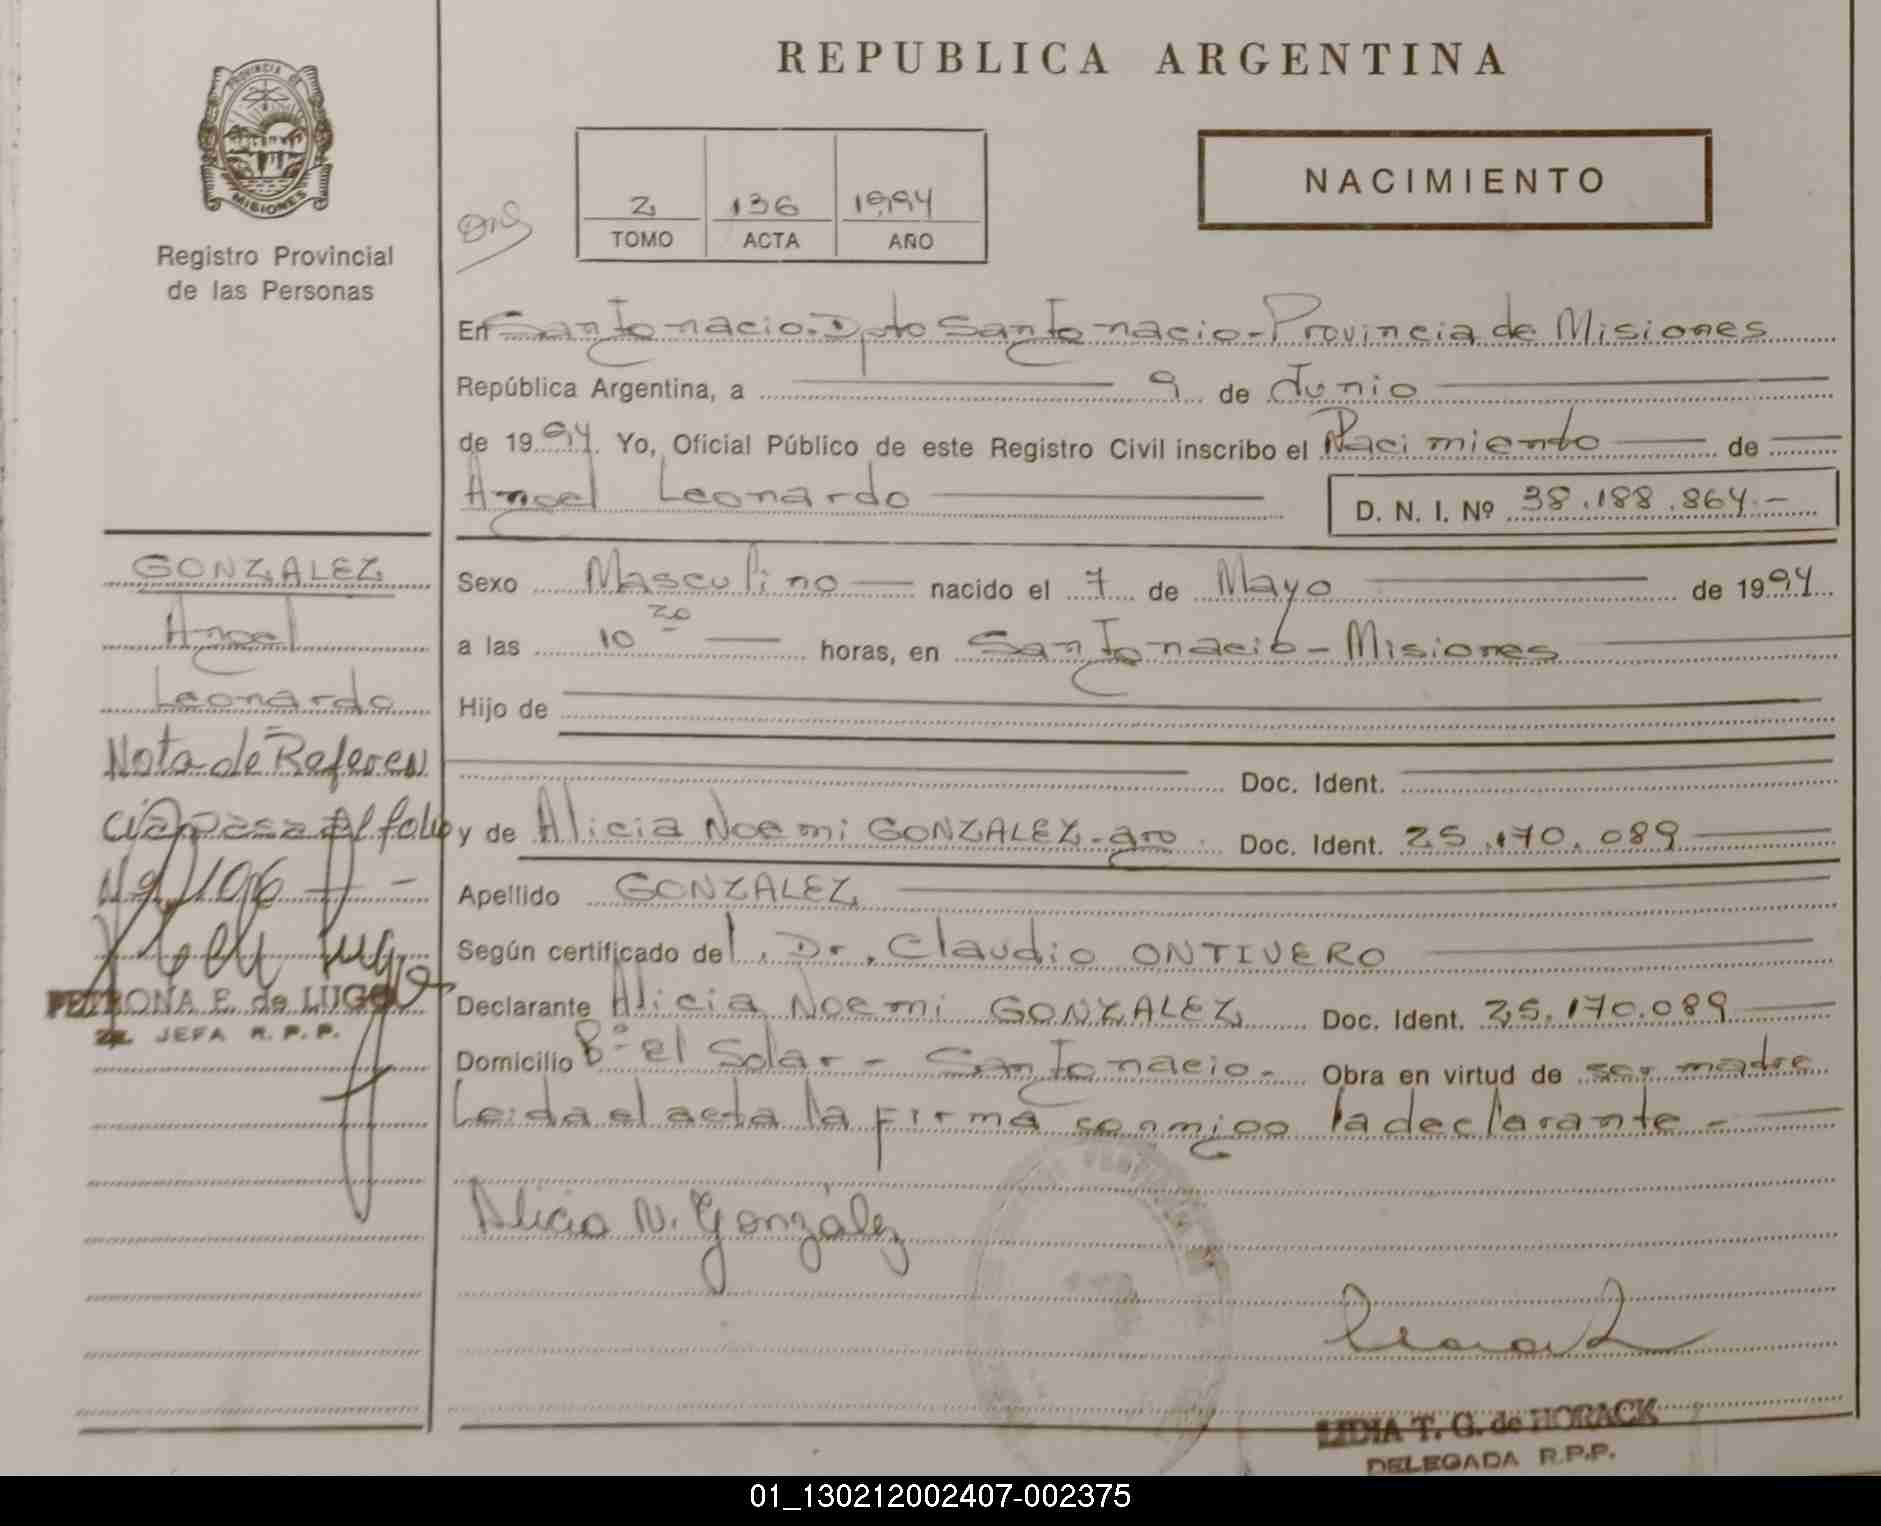 REPUBLICA ARGENTINA
PROVINCIA DE
MISIONES
Registro Provincial
de las Personas
2 136 1994
TOMO ACTA AÑO
NACIMIENTO
En San Ignacio. Dpto San Ignacio - Provincia de Misiones
República Argentina, a 9 de Junio
de 1994. Yo, Oficial Público de este Registro Civil inscribo el Nacimiento de
Angel Leonardo D. N. I. Nº 38.188.864.-
GONZALEZ
Angel
Leonardo
Nota de Referen
cia pasa al folio
Nº 106 -
PETRONA E. de LUGO
2a. JEFA R. P. P.
Sexo Masculino nacido el 7 de Mayo de 1994
a las 10 20 horas, en San Ignacio - Misiones
Hijo de
Doc. Ident.
y de Alicia Noemi GONZALEZ - Doc. Ident. 25.170.089
Apellido GONZALEZ
Según certificado del. Dr. Claudio ONTIVERO
Declarante Alicia Noemi GONZALEZ Doc. Ident. 25.170.089
Domicilio Bº el Solar - San Ignacio - Obra en virtud de ser madre
Leida el acta la firma conmigo la declarante -
Alicia N. González
LIDIA T. G. de HORACK
DELEGADA R.P.P.
01_130212002407-002375